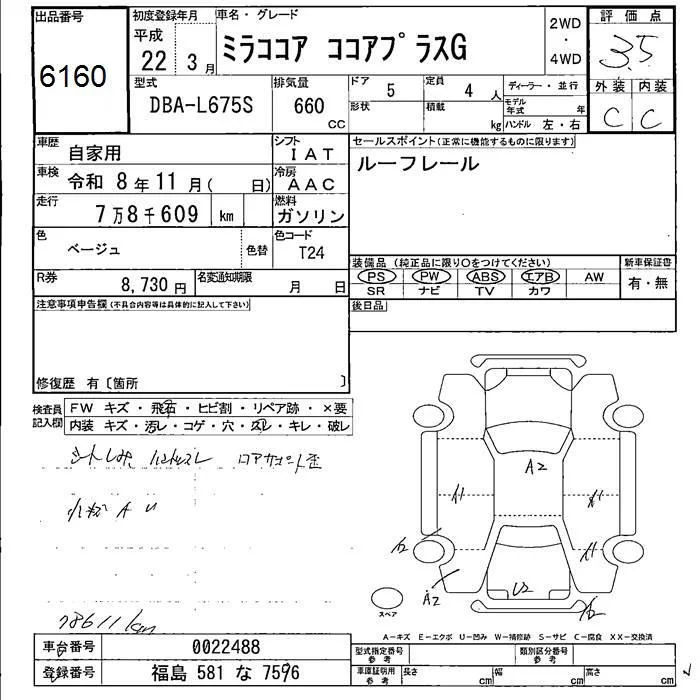 出品番号
6160
初度登録年月 車名・グレード
平成
22 3月 ミラココア ココアプラスG
2WD
・
4WD
評価点
3.5
外装 内装
C C
型式
DBA-L675S
排気量
660
CC
ドア 5 定員 4人
形状 積載 kg
ディーラー・並行
モデル年式 年
ハンドル 左・右
車歴 自家用
シフト IAT
車検 令和 8年11月( 日)
冷房 AAC
走行 7万8千609 km
燃料 ガソリン
色 ベージュ 色替
色コード T24
R券 8,730円
名変通知期限 月 日
セールスポイント(正常に機能するものに限ります)
ルーフレール
装備品(純正品に限り○をつけてください)
PS PW ABS エアB AW
SR ナビ TV カワ
新車保証書
有・無
後日品
注意事項申告欄(不具合内容等は具体的に記入して下さい)
修復歴 有〔箇所 〕
検査員記入欄
FW キズ・飛石・ヒビ割・リペア跡・×要
内装 キズ・汚レ・コゲ・穴・スレ・キレ・破レ
シートしみ
小キズ A U
78611km
A2
A1
A1
A2
A1
A2
U2
A2
スペア
A-キズ E-エクボ U-凹み W-補修跡 S-サビ C-腐食 XX-交換済
車台番号 0022488
登録番号 福島 581 な 7596
型式指定番号
参考
類別区分番号
参考
車庫証明用
参考
長さ cm 幅 cm 高さ cm